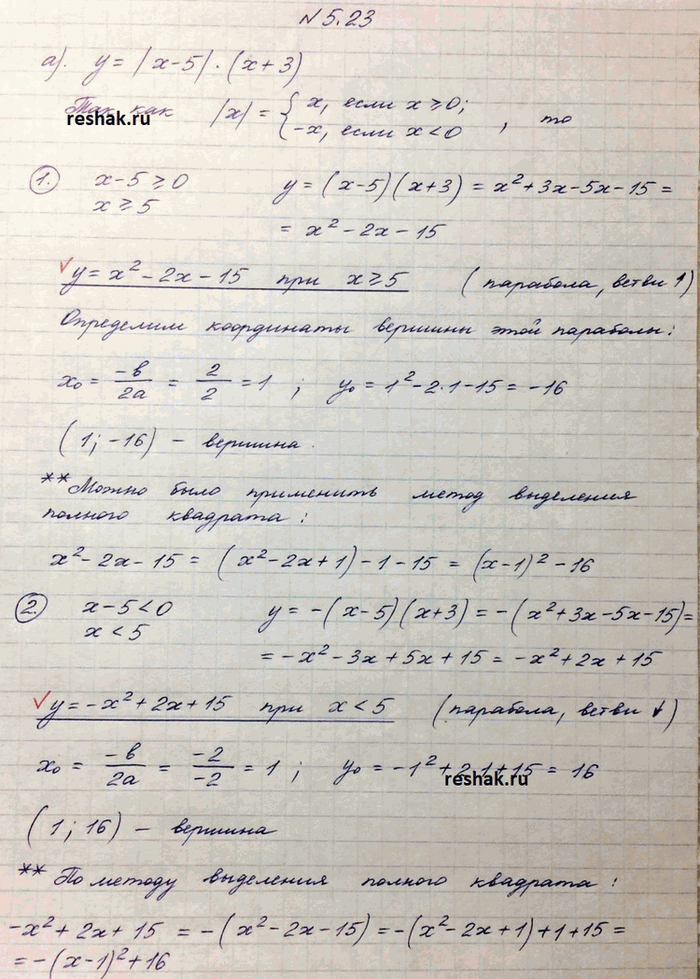 N 5.23
а). y = |x-5|·(x+3)
Так как |x| = { x, если x ≥ 0; -x, если x < 0 , то
reshak.ru
1. x-5 ≥ 0 y = (x-5)(x+3) = x² + 3x - 5x - 15 =
x ≥ 5
= x² - 2x - 15
√ y = x² - 2x - 15 при x ≥ 5 (парабола, ветви ↑)
Определим координаты вершины этой параболы:
x₀ = -в/2а = 2/2 = 1 ; y₀ = 1² - 2·1 - 15 = -16
(1; -16) - вершина.
** Можно было применить метод выделения
полного квадрата:
x² - 2x - 15 = (x² - 2x + 1) - 1 - 15 = (x-1)² - 16
2. x-5 < 0 y = -(x-5)(x+3) = -(x² + 3x - 5x - 15) =
x < 5
= -x² - 3x + 5x + 15 = -x² + 2x + 15
√ y = -x² + 2x + 15 при x < 5 (парабола, ветви ↓)
x₀ = -в/2а = -2/-2 = 1 ; y₀ = -1² + 2·1 + 15 = 16
reshak.ru
(1; 16) - вершина
** По методу выделения полного квадрата:
-x² + 2x + 15 = -(x² - 2x - 15) = -(x² - 2x + 1) + 1 + 15 =
= -(x-1)² + 16